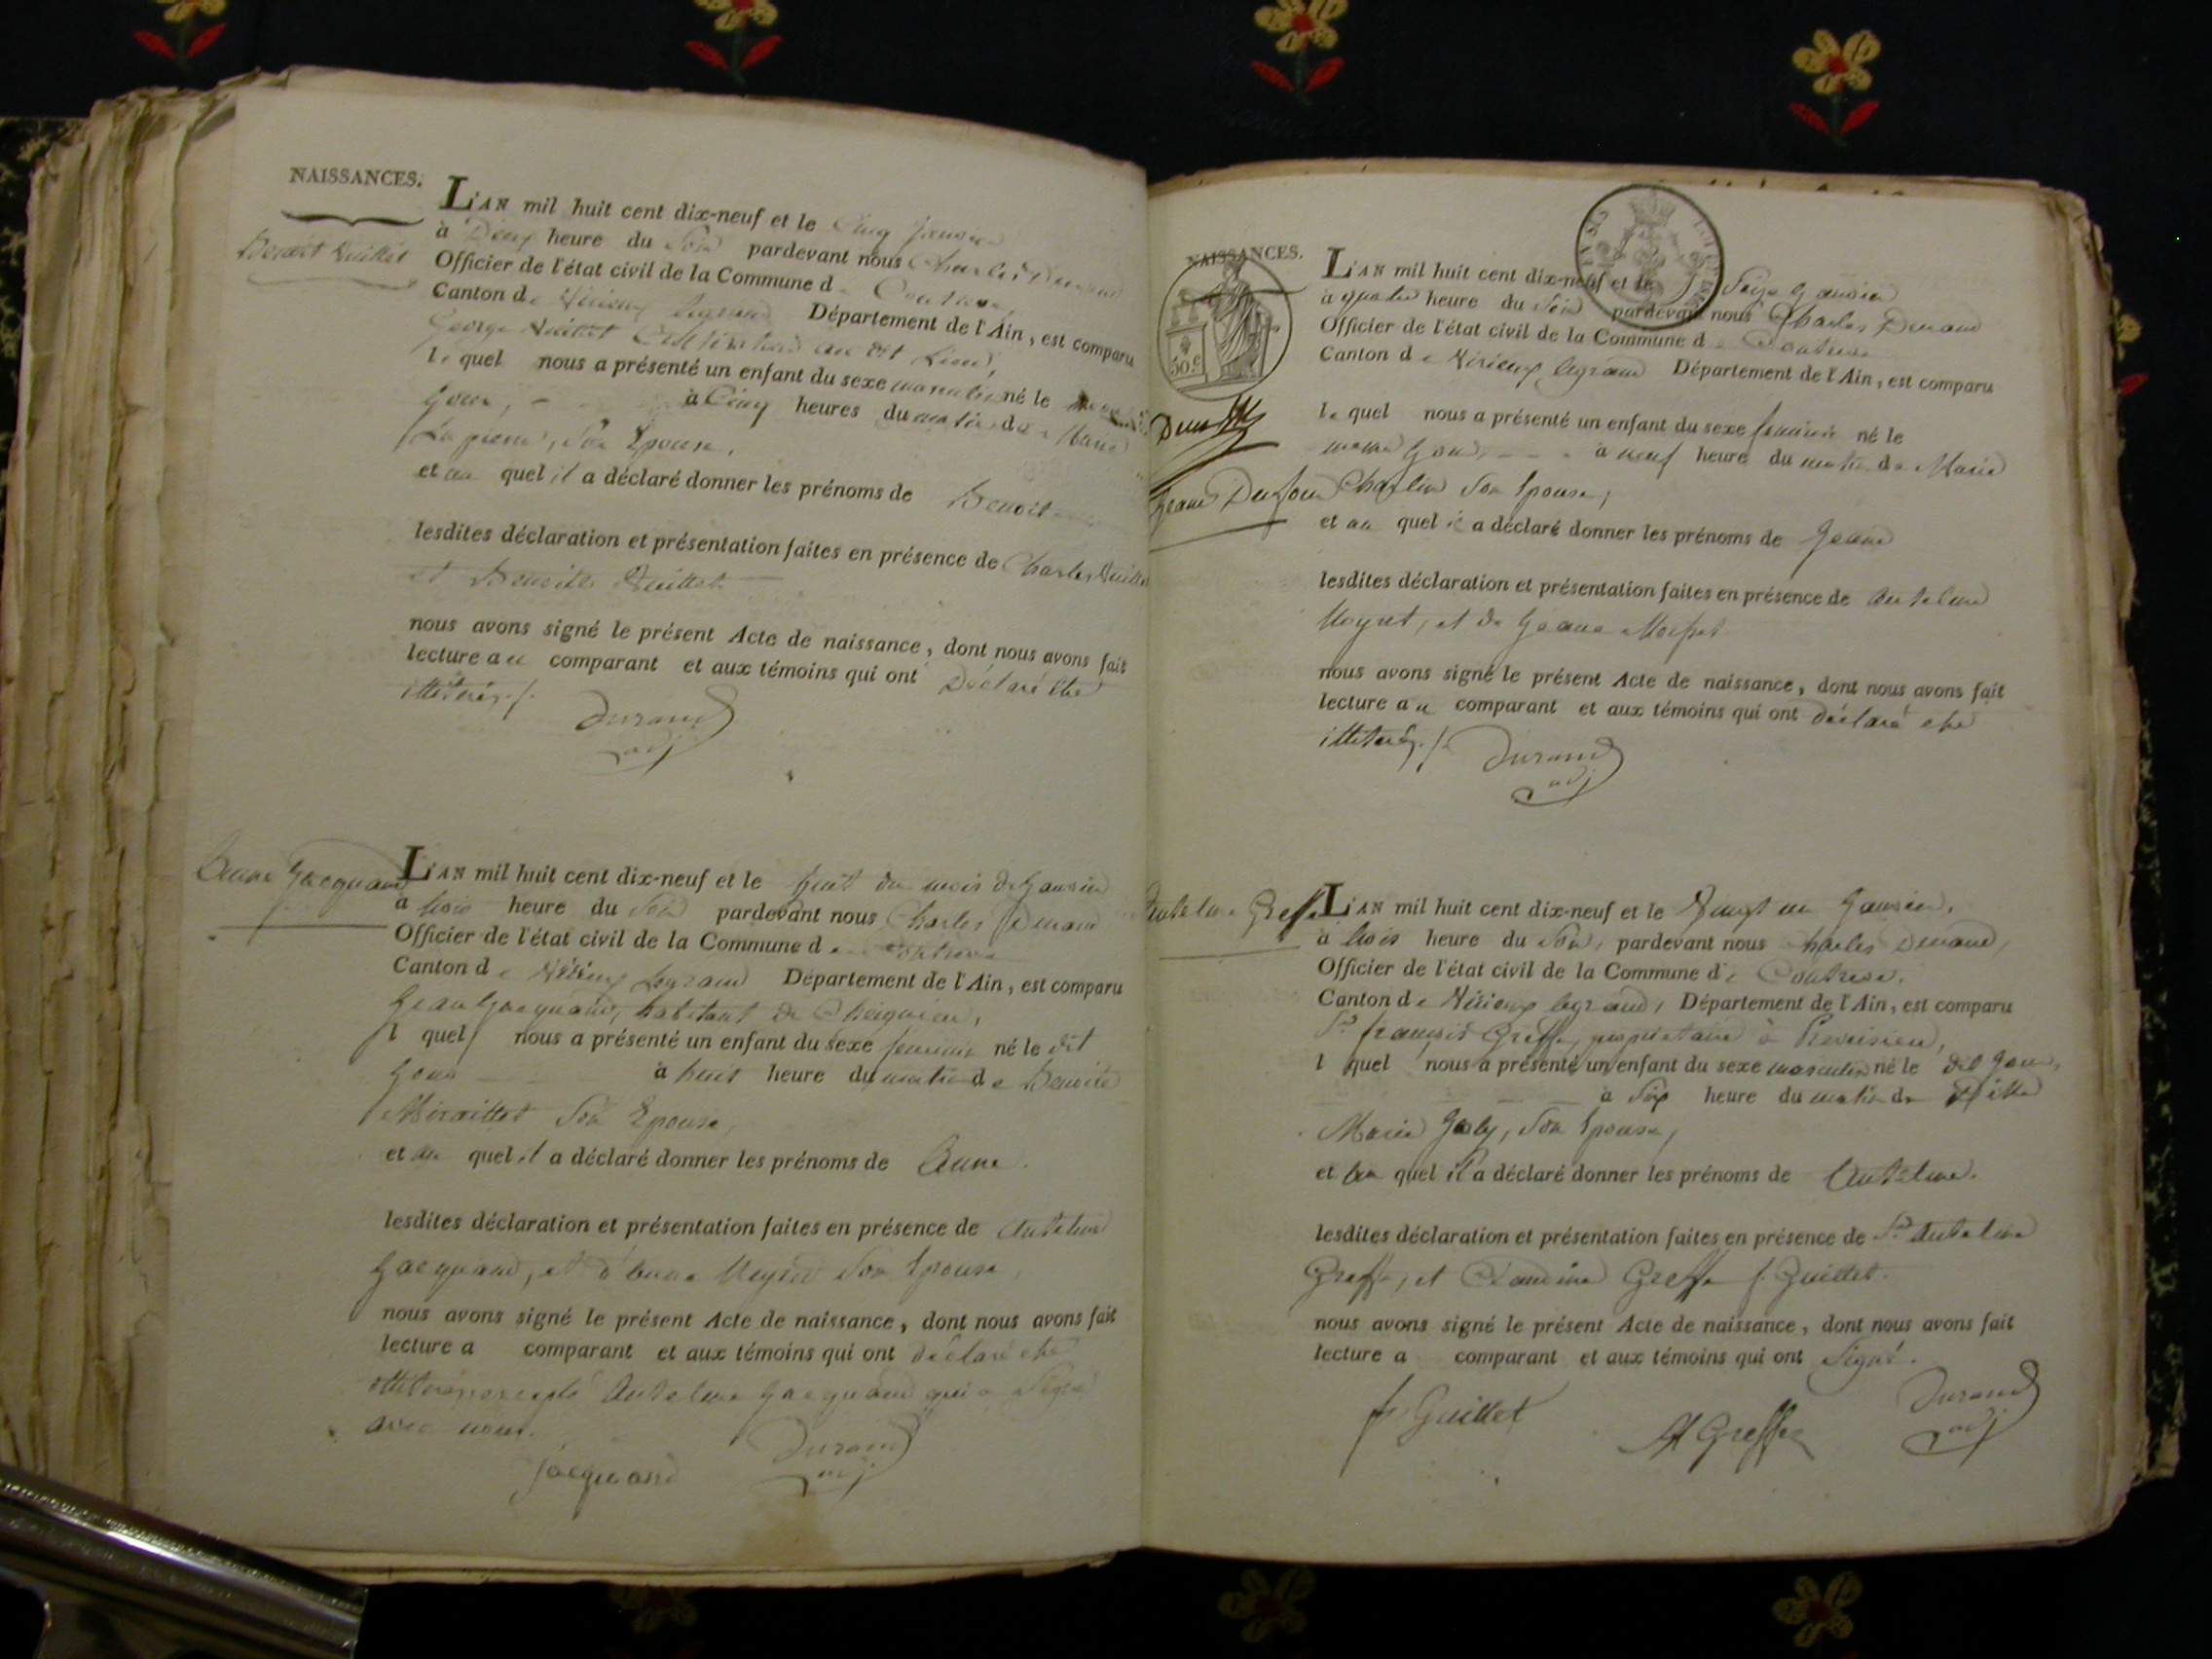 NAISSANCES.
Benoit Vuillet
L'AN mil huit cent dix-neuf et le Cinq Janvier
à Deux heure du Soir pardevant nous Charles Durand
Officier de l'état civil de la Commune de Contrevoz
Canton de Virieux legrand Département de l'Ain, est comparu
George Vuillet Cultivateur au dit Lieu,
le quel nous a présenté un enfant du sexe masculin né le même
Jour, à Cinq heures du matin de Marie
Lapierre, Son Epouse,
et au quel il a déclaré donner les prénoms de Benoit
lesdites déclaration et présentation faites en présence de Charles Vuillet
et Benoite Vuillet.
nous avons signé le présent Acte de naissance, dont nous avons fait
lecture au comparant et aux témoins qui ont Déclaré être
illiterés./.
Durand
adj
L'AN mil huit cent dix-neuf et le huit du mois de Janvier
Anne Jacquand
a trois heure du Soir pardevant nous Charles Durand
Officier de l'état civil de la Commune de
Canton de Virieux Legrand Département de l'Ain, est comparu
Jean Jacquand, habitant de Cheignieu,
l quel nous a présenté un enfant du sexe feminin né le dit
Jour à huit heure du matin de Benoite
Miraillet Son Epouse,
et au quel il a déclaré donner les prénoms de Anne.
lesdites déclaration et présentation faites en présence de Antelme
Jacquand, et d'Anne Son Epouse
nous avons signé le présent Acte de naissance, dont nous avons fait
lecture a comparant et aux témoins qui ont déclaré etre
Antelme Jacquand qui a Signé
avec nous.
Jacquand
Durand
adj
NAISSANCES.
50 c
L'AN mil huit cent dix-neuf et le Seize Janvier
à quatre heure du Soir pardevant nous Charles Durand
Officier de l'état civil de la Commune de
Canton de Virieux legrand Département de l'Ain, est comparu
le quel nous a présenté un enfant du sexe feminin né le
meme Jour, à neuf heure du matin de Marie
Jeane
Son Epouse,
et au quel il a déclaré donner les prénoms de Jeane
lesdites déclaration et présentation faites en présence de Antelme
et de Jeane
nous avons signé le présent Acte de naissance, dont nous avons fait
lecture au comparant et aux témoins qui ont déclaré etre
illiterés./.
Durand
adj
Antelme Greffe
L'AN mil huit cent dix-neuf et le Vingt un Janvier,
à trois heure du Soir, pardevant nous Charles Durand,
Officier de l'état civil de la Commune de
Canton de Virieux legrand, Département de l'Ain, est comparu
Sr françois Greffe, proprietaire à
l quel nous a présenté un enfant du sexe masculin né le dit Jour,
à Six heure du matin de
Marie Joly, Son Epouse,
et au quel il a déclaré donner les prénoms de Antelme.
lesdites déclaration et présentation faites en présence de Sr Antelme
Greffe, et Claudine Greffe f. Guillet.
nous avons signé le présent Acte de naissance, dont nous avons fait
lecture a comparant et aux témoins qui ont Signé.
f Guillet
A Greffe
Durand
adj